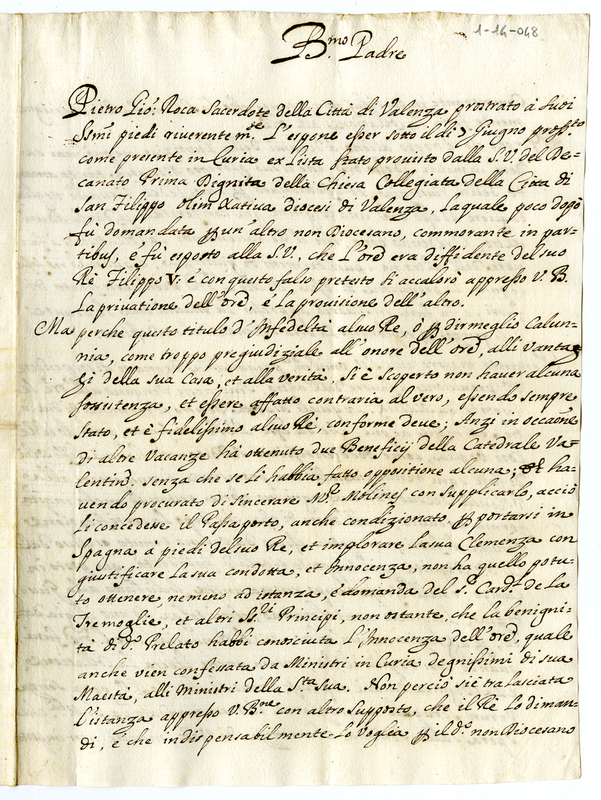 1-14-048
B.mo Padre
Pietro Gio: Roca Sacerdote della Città di Valenza prostrato à suoi
SSmi piedi riverentem.te L'espone esser sotto il di 7 Giugno pross.to
come presente in Curia ex Lista stato provisto dalla S.V. del De=
canato Prima Dignita della Chiesa Collegiata della Città di
San Filippo olim Xativa diocesi di Valenza, La quale poco dopò
fù domandata p un'altro non Diocesano, commorante in par=
tibus, è fù esposto alla S.V., che L'ore era diffidente del suo
Rè Filippo V: è con questo falso pretesto si accalorò appresso V.B.
La privatione dell'ore, è La provisione dell'altro.
Ma perche questo titulo d'Infedeltà al suo Re, ò p dir meglio Calun=
nia, come troppo pregiudiziale all'onore dell'ore, alli Vantag
gi della sua Casa, et alla verità, Si è scoperto non haver alcuna
sossistenza, et essere affatto contraria al vero, essendo sempre
stato, et è fidelissimo al suo Rè, conforme deve; Anzi in occaone
di altre Vacanze ha ottenuto due Beneficij della Catedrale Va=
lentin. senza che se li habbia fatto oppositione alcuna; ha=
vendo procurato di sincerare M.r Molines con supplicarlo, acciò
Li concedesse il Passaporto, anche condizionato p portarsi in
Spagna à piedi del suo Re, et implorare La sua Clemenza con
giustificare La sua condotta, et Innocenza, non ha quello potu=
to ottenere, nemeno ad istanza, è domanda del S.r Card. de La
Tremoglie, et altri SS.ri Principi, non ostante, che la benigni=
tà di d.o Prelato habbi conosciuta L'Innocenza dell'ore, quale
anche vien confessata da Ministri in Curia degnissimi di sua
Maestà, alli Ministri della S.ta Sua. Non perciò si è tralasciata
L'istanza appresso V. B.ne con altro Supposto, che il Rè Lo diman=
di, è che indispensabilmente Lo voglia p il d.o non Diocesano